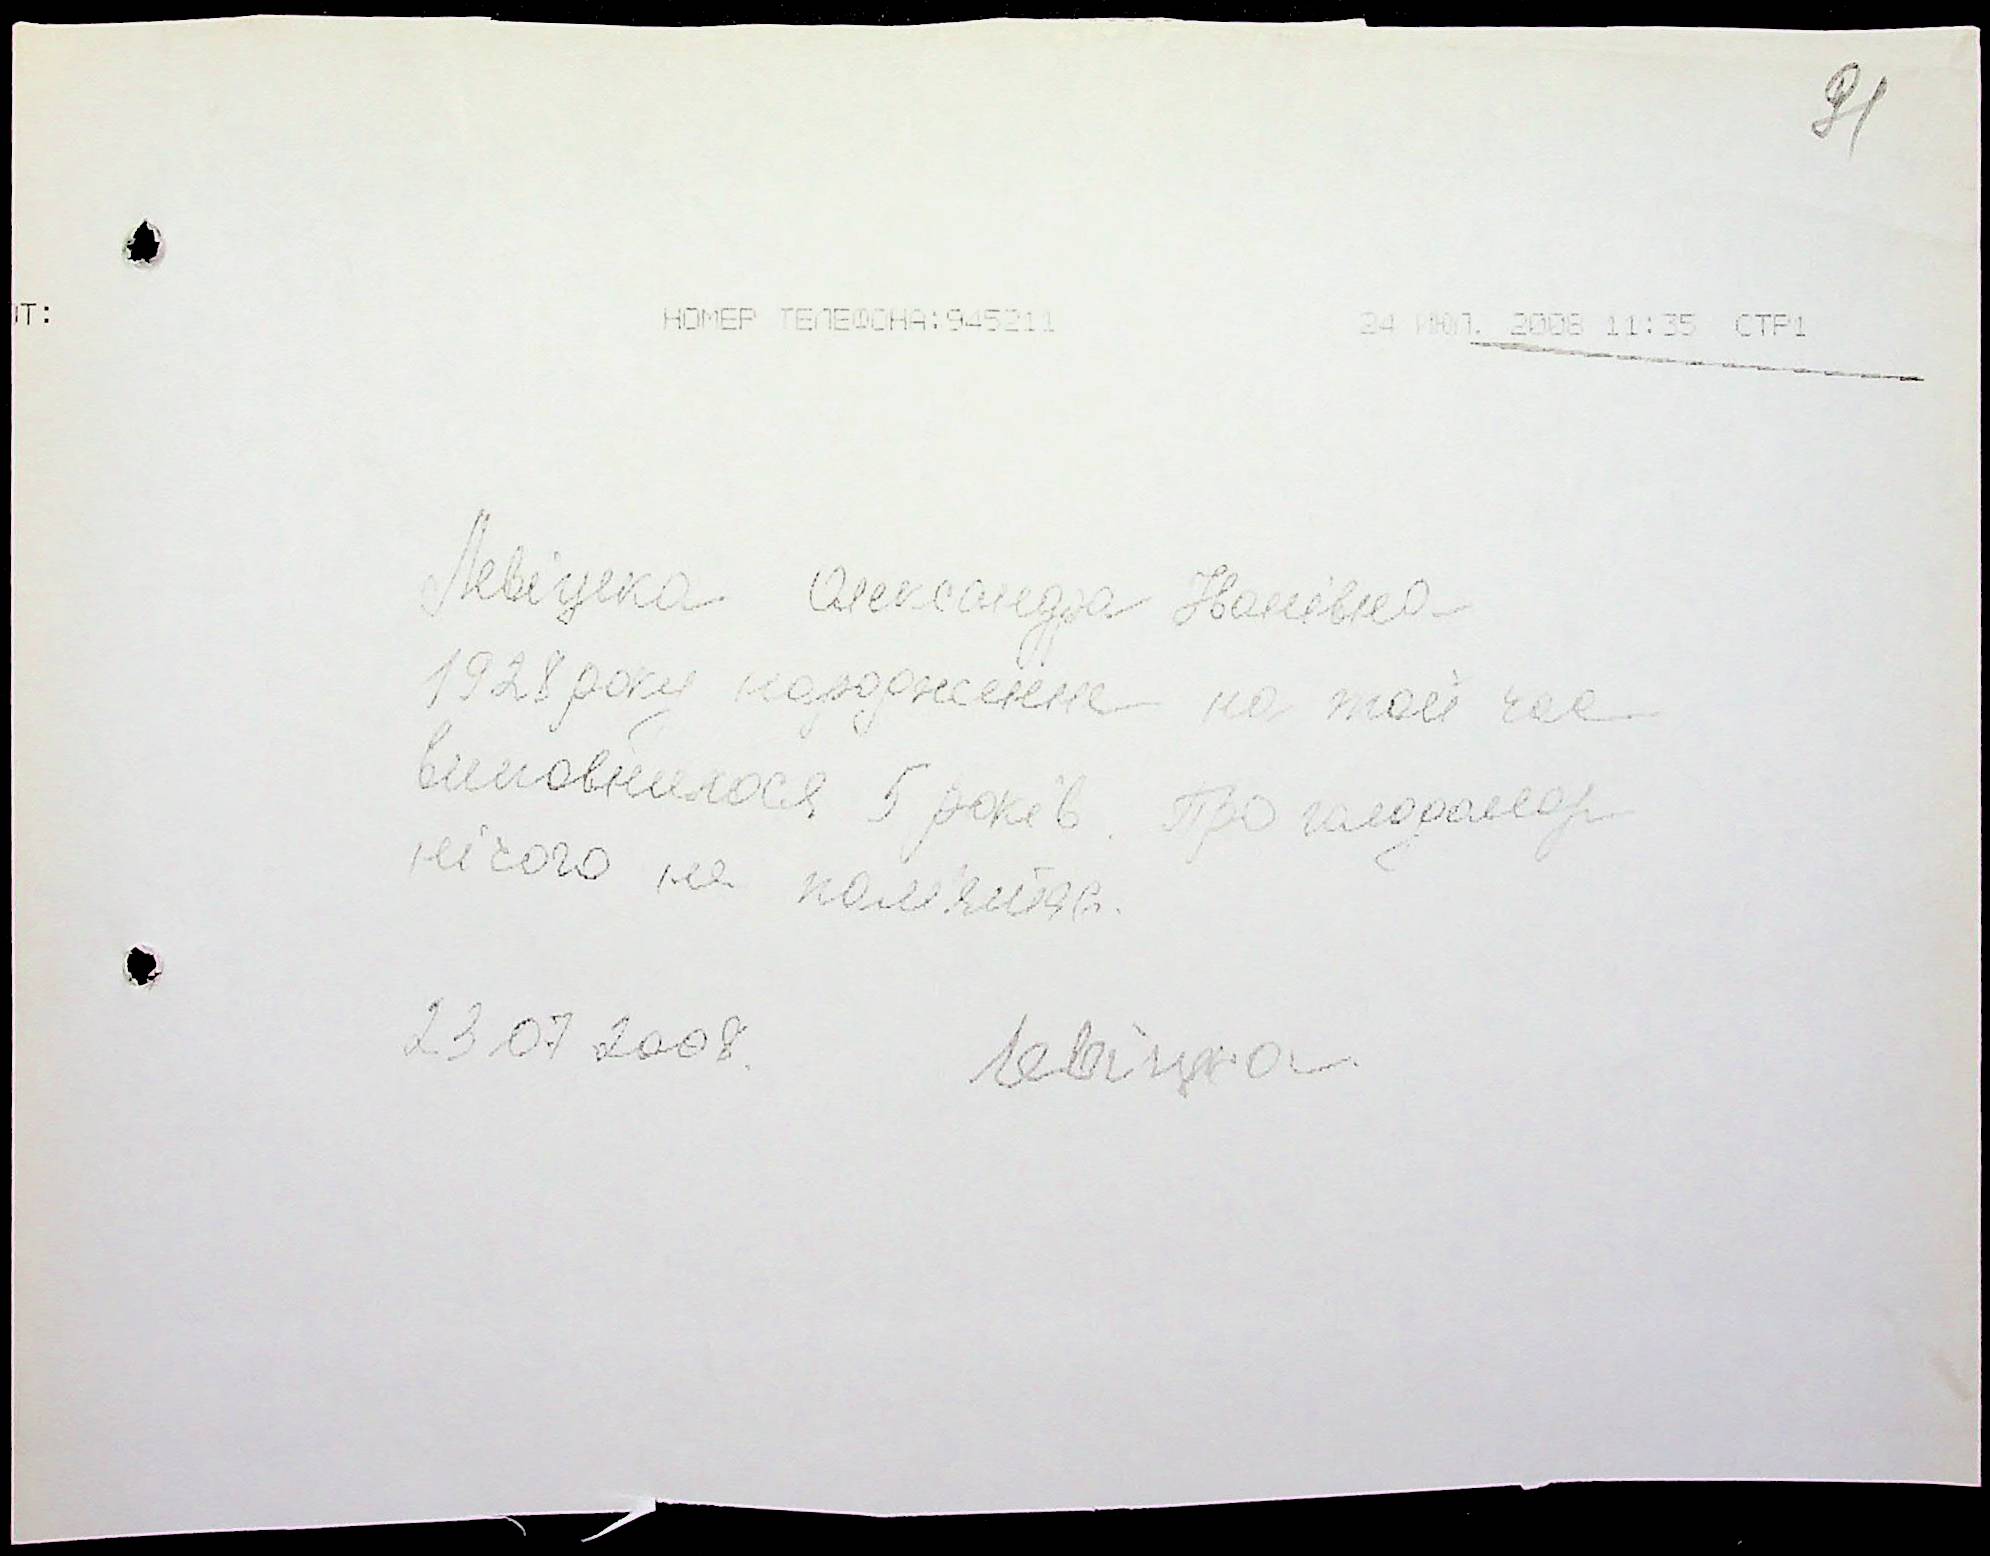 91
ОТ: НОМЕР ТЕЛЕФОНА:945211 24 ИЮЛ. 2008 11:35 СТР1
Левіцка Олександра Іванівна
1928 року народження на той час
виповнилося 5 років. Про голодомор
нічого не пам'ятає.
23 07 2008. Левіцка